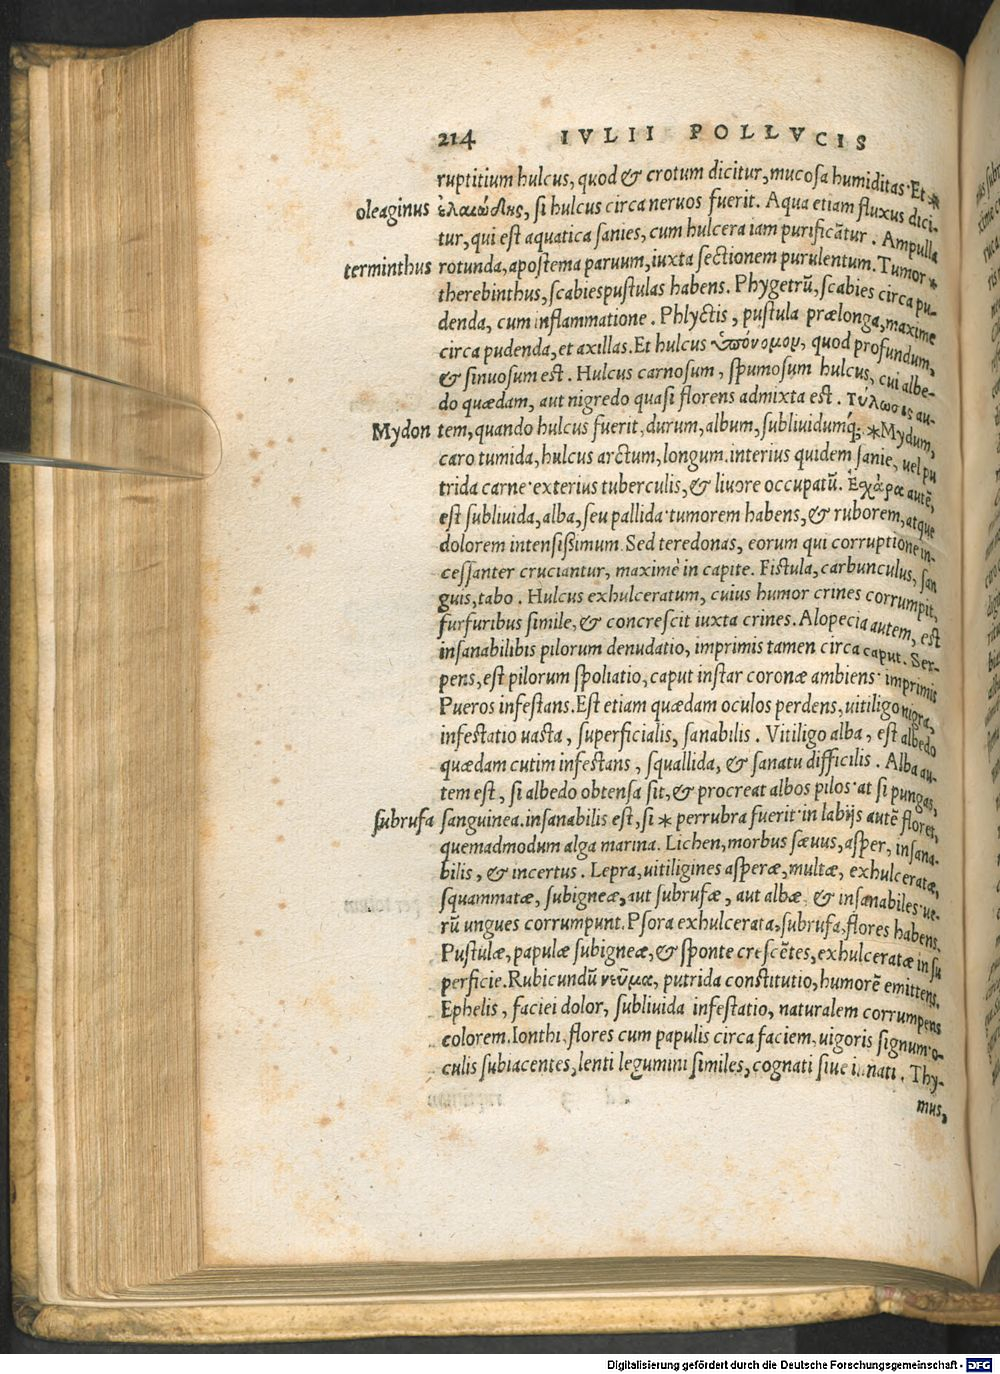 214 IVLII POLLVCIS
ruptitium hulcus, quod & crotum dicitur, mucosa humiditas. Et *
oleaginus ἐλαιώδης, si hulcus circa neruos fuerit. Aqua etiam fluxus dici-
tur, qui est aquatica sanies, cum hulcera iam purificãtur. Ampulla
terminthus rotunda, apostema paruum, iuxta sectionem purulentum. Tumor *
therebinthus, scabiespustulas habens. Phygetrũ, scabies circa pu-
denda, cum inflammatione. Phlyctis, pustula prælonga, maxime
circa pudenda, et axillas. Et hulcus ὑπόνομον, quod profundum,
& sinuosum est. Hulcus carnosum, spumosum hulcus, cui albe-
do quædam, aut nigredo quasi florens admixta est. Τύλωσις au-
Mydon tem, quando hulcus fuerit, durum, album, subliuidumq́;. *Mydum,
caro tumida, hulcus arctum, longum. interius quidem sanie, uel pu
trida carne. exterius tuberculis, & liuore occupatũ. Ἐσχάρα autẽ,
est subliuida, alba, seu pallida. tumorem habens, & ruborem, atque
dolorem intensißimum. Sed teredonas, eorum qui corruptione in-
cessanter cruciantur, maximè in capite. Fistula, carbunculus, san
guis, tabo. Hulcus exhulceratum, cuius humor crines corrumpit,
furfuribus simile, & concrescit iuxta crines. Alopecia autem, est
insanabilibis pilorum denudatio, imprimis tamen circa caput. Ser-
pens, est pilorum spoliatio, caput instar coronæ ambiens. imprimis
Pueros infestans. Est etiam quædam oculos perdens, uitiligo nigra,
infestatio uasta, superficialis, sanabilis. Vitiligo alba, est albedo
quædam cutim infestans, squallida, & sanatu difficilis. Alba au-
tem est, si albedo obtensa sit, & procreat albos pilos. at si pungas,
subrufa sanguinea. insanabilis est, si * perrubra fuerit. in labijs autẽ floret,
quemadmodum alga marina. Lichen, morbus sæuus, asper, insana-
bilis, & incertus. Lepra, uitiligines asperæ, multæ, exhulceratæ,
squammatæ, subigneæ, aut subrufæ, aut albæ, & insanabiles. ue-
rũ ungues corrumpunt. Psora exhulcerata, subrufa, flores habens,
Pustulæ, papulæ subigneæ, & sponte crescẽtes, exhulceratæ in su
perficie. Rubicundũ νεῦμα, putrida constitutio, humorẽ emittens,
Ephelis, faciei dolor, subliuida infestatio, naturalem corrumpens
colorem. Ionthi, flores cum papulis circa faciem, uigoris signum. o-
culis subiacentes, lenti legumini similes, cognati siue innati. Thy-
mus,
Digitalisierung gefördert durch die Deutsche Forschungsgemeinschaft - DFG